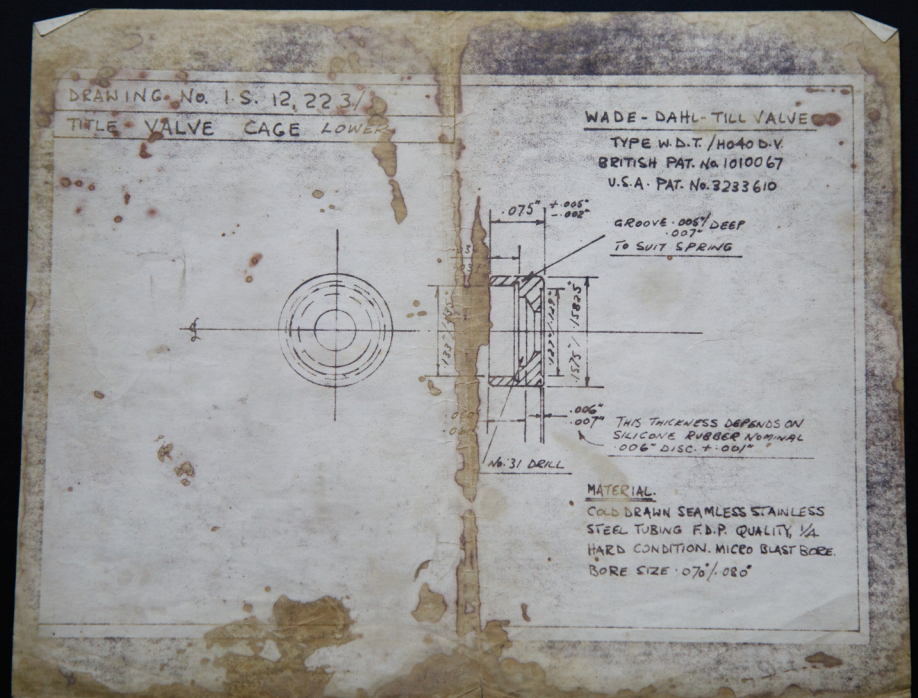 DRAWING No. I.S. 12,223/
TITLE VALVE CAGE LOWER
WADE-DAHL-TILL VALVE
TYPE W.D.T./H040 D.V.
BRITISH PAT. No. 1010067
U.S.A. PAT. No. 3233610
.075" +.005"
-.002"
GROOVE .005"/ DEEP
.007"
TO SUIT SPRING
.127"/.129"
.1575"/.15825"
.006"
.007"
THIS THICKNESS DEPENDS ON
SILICONE RUBBER NOMINAL
.006" DISC. +.001"
No. 31 DRILL
MATERIAL.
COLD DRAWN SEAMLESS STAINLESS
STEEL TUBING F.D.P. QUALITY, 1/4
HARD CONDITION. MICRO BLAST BORE.
BORE SIZE .070"/.080"